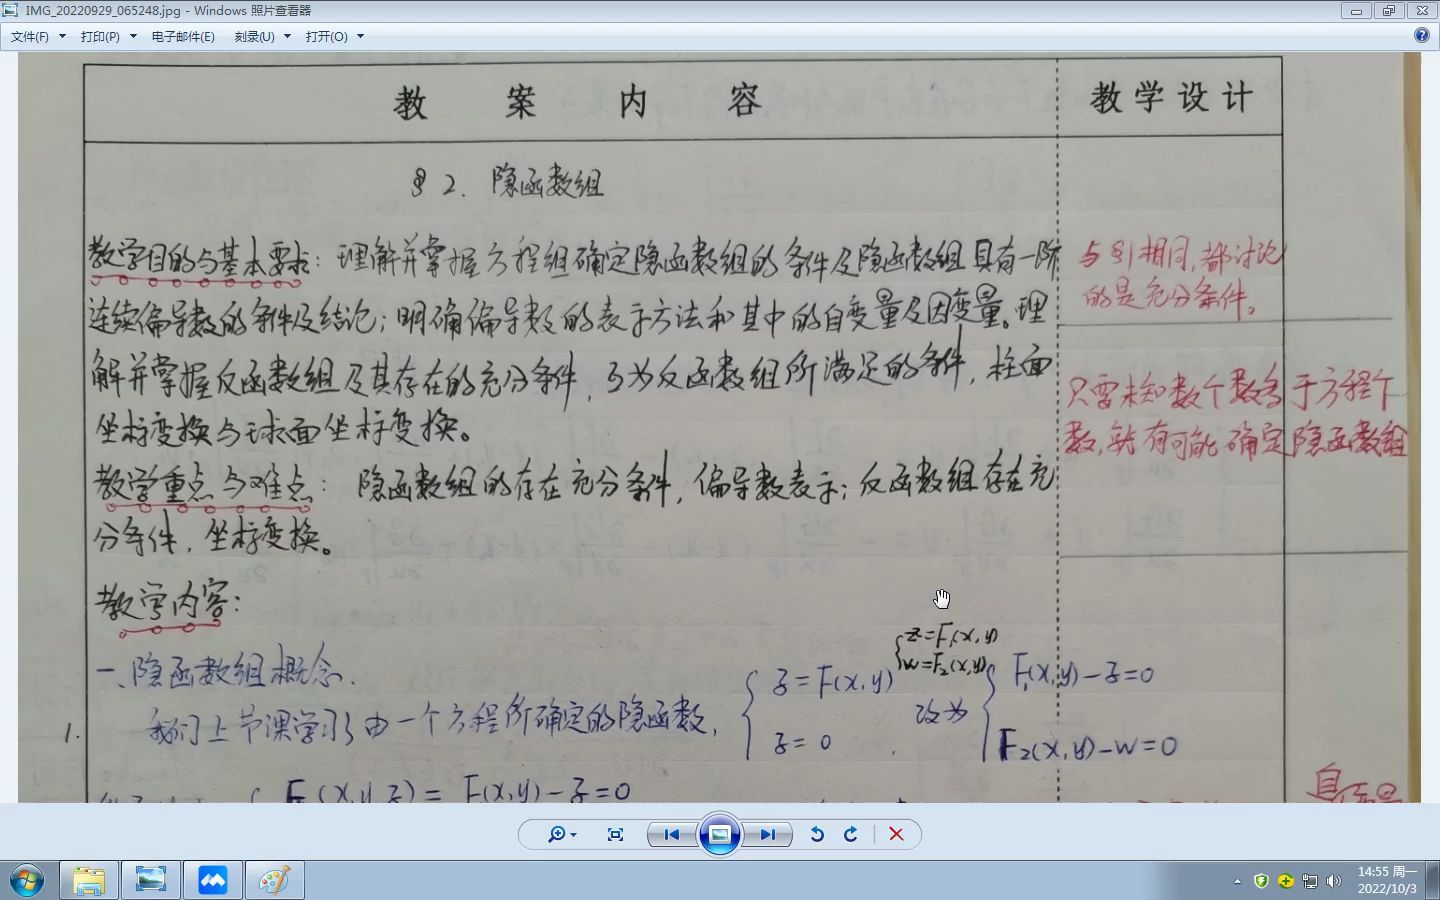 IMG_20220929_065248.jpg - Windows 照片查看器
文件(F) 打印(P) 电子邮件(E) 刻录(U) 打开(O)
教 案 内 容
教学设计
§2. 隐函数组
教学目的与基本要求：理解并掌握方程组确定隐函数组的条件及隐函数组具有一阶
连续偏导数的条件及结论；明确偏导数的表示方法和其中的自变量及因变量。理
解并掌握反函数组及其存在的充分条件，互为反函数组所满足的条件，柱面
坐标变换与球面坐标变换。
教学重点与难点：隐函数组的存在充分条件，偏导数表示；反函数组存在充
分条件，坐标变换。
教学内容：
与§1相同，都讨论
的是充分条件。
只要未知数个数多于方程个
数，就有可能确定隐函数组
一、隐函数组概念.
1. 我们上节课学习了由一个方程所确定的隐函数，
z=F(x,y)
z=0
z=F₁(x,y)
w=F₂(x,y)
改为
F₁(x,y)-z=0
F₂(x,y)-w=0
F₁(x,y,z)=F(x,y)-z=0
自
14:55 周一
2022/10/3